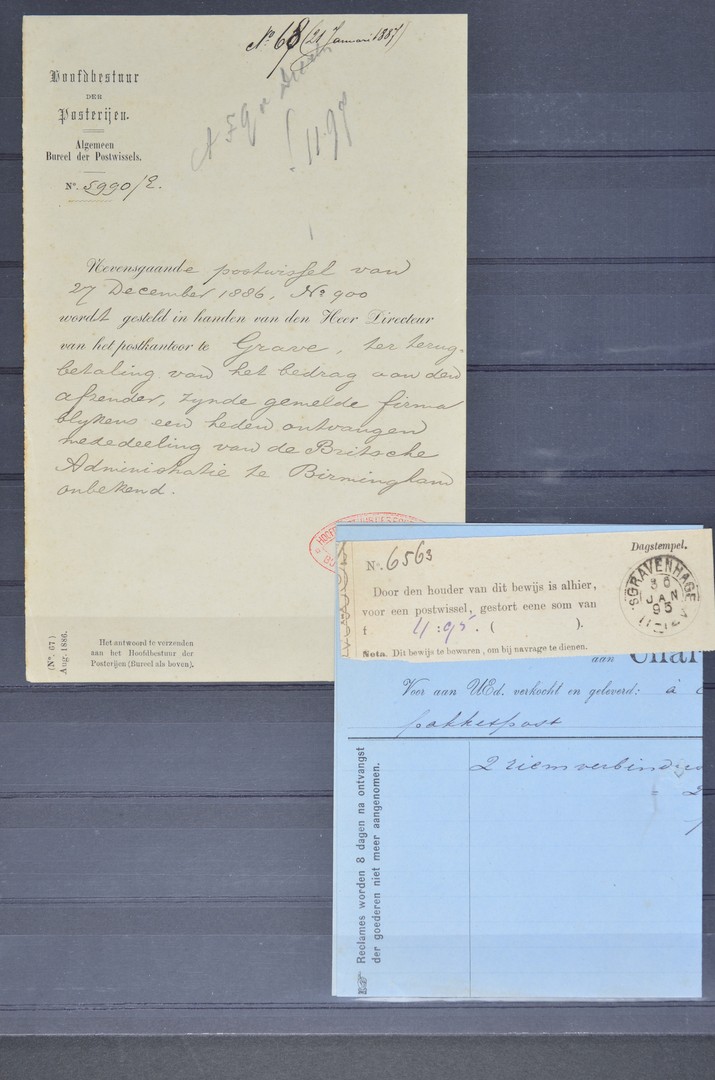 No 68 (21 Januari 1887)
Hoofdbestuur
DER
Posterijen.
Algemeen
Bureel der Postwissels.
No. 5990/2.
11.97
Nevensgaande postwissel van
27 December 1886, No 900
wordt gesteld in handen van den Heer Directeur
van het postkantoor te Grave, ter terug-
betaling van het bedrag aan den
afzender, zynde gemelde firma
blykens een heden ontvangen
mededeeling van de Britsche
Administratie te Birmingham
onbekend.
(No. 67)
Aug. 1886.
Het antwoord te verzenden
aan het Hoofdbestuur der
Posterijen (Bureel als boven).
Dagstempel.
No. 6563
'SGRAVENHAGE
JAN
95
Door den houder van dit bewijs is alhier,
voor een postwissel, gestort eene som van
f 4:95. ( ).
Nota. Dit bewijs te bewaren, om bij navrage te dienen.
aan Char
Voor aan UEd. verkocht en geleverd: à c
pakketpost
2 riemverbinders
Reclames worden 8 dagen na ontvangst
der goederen niet meer aangenomen.